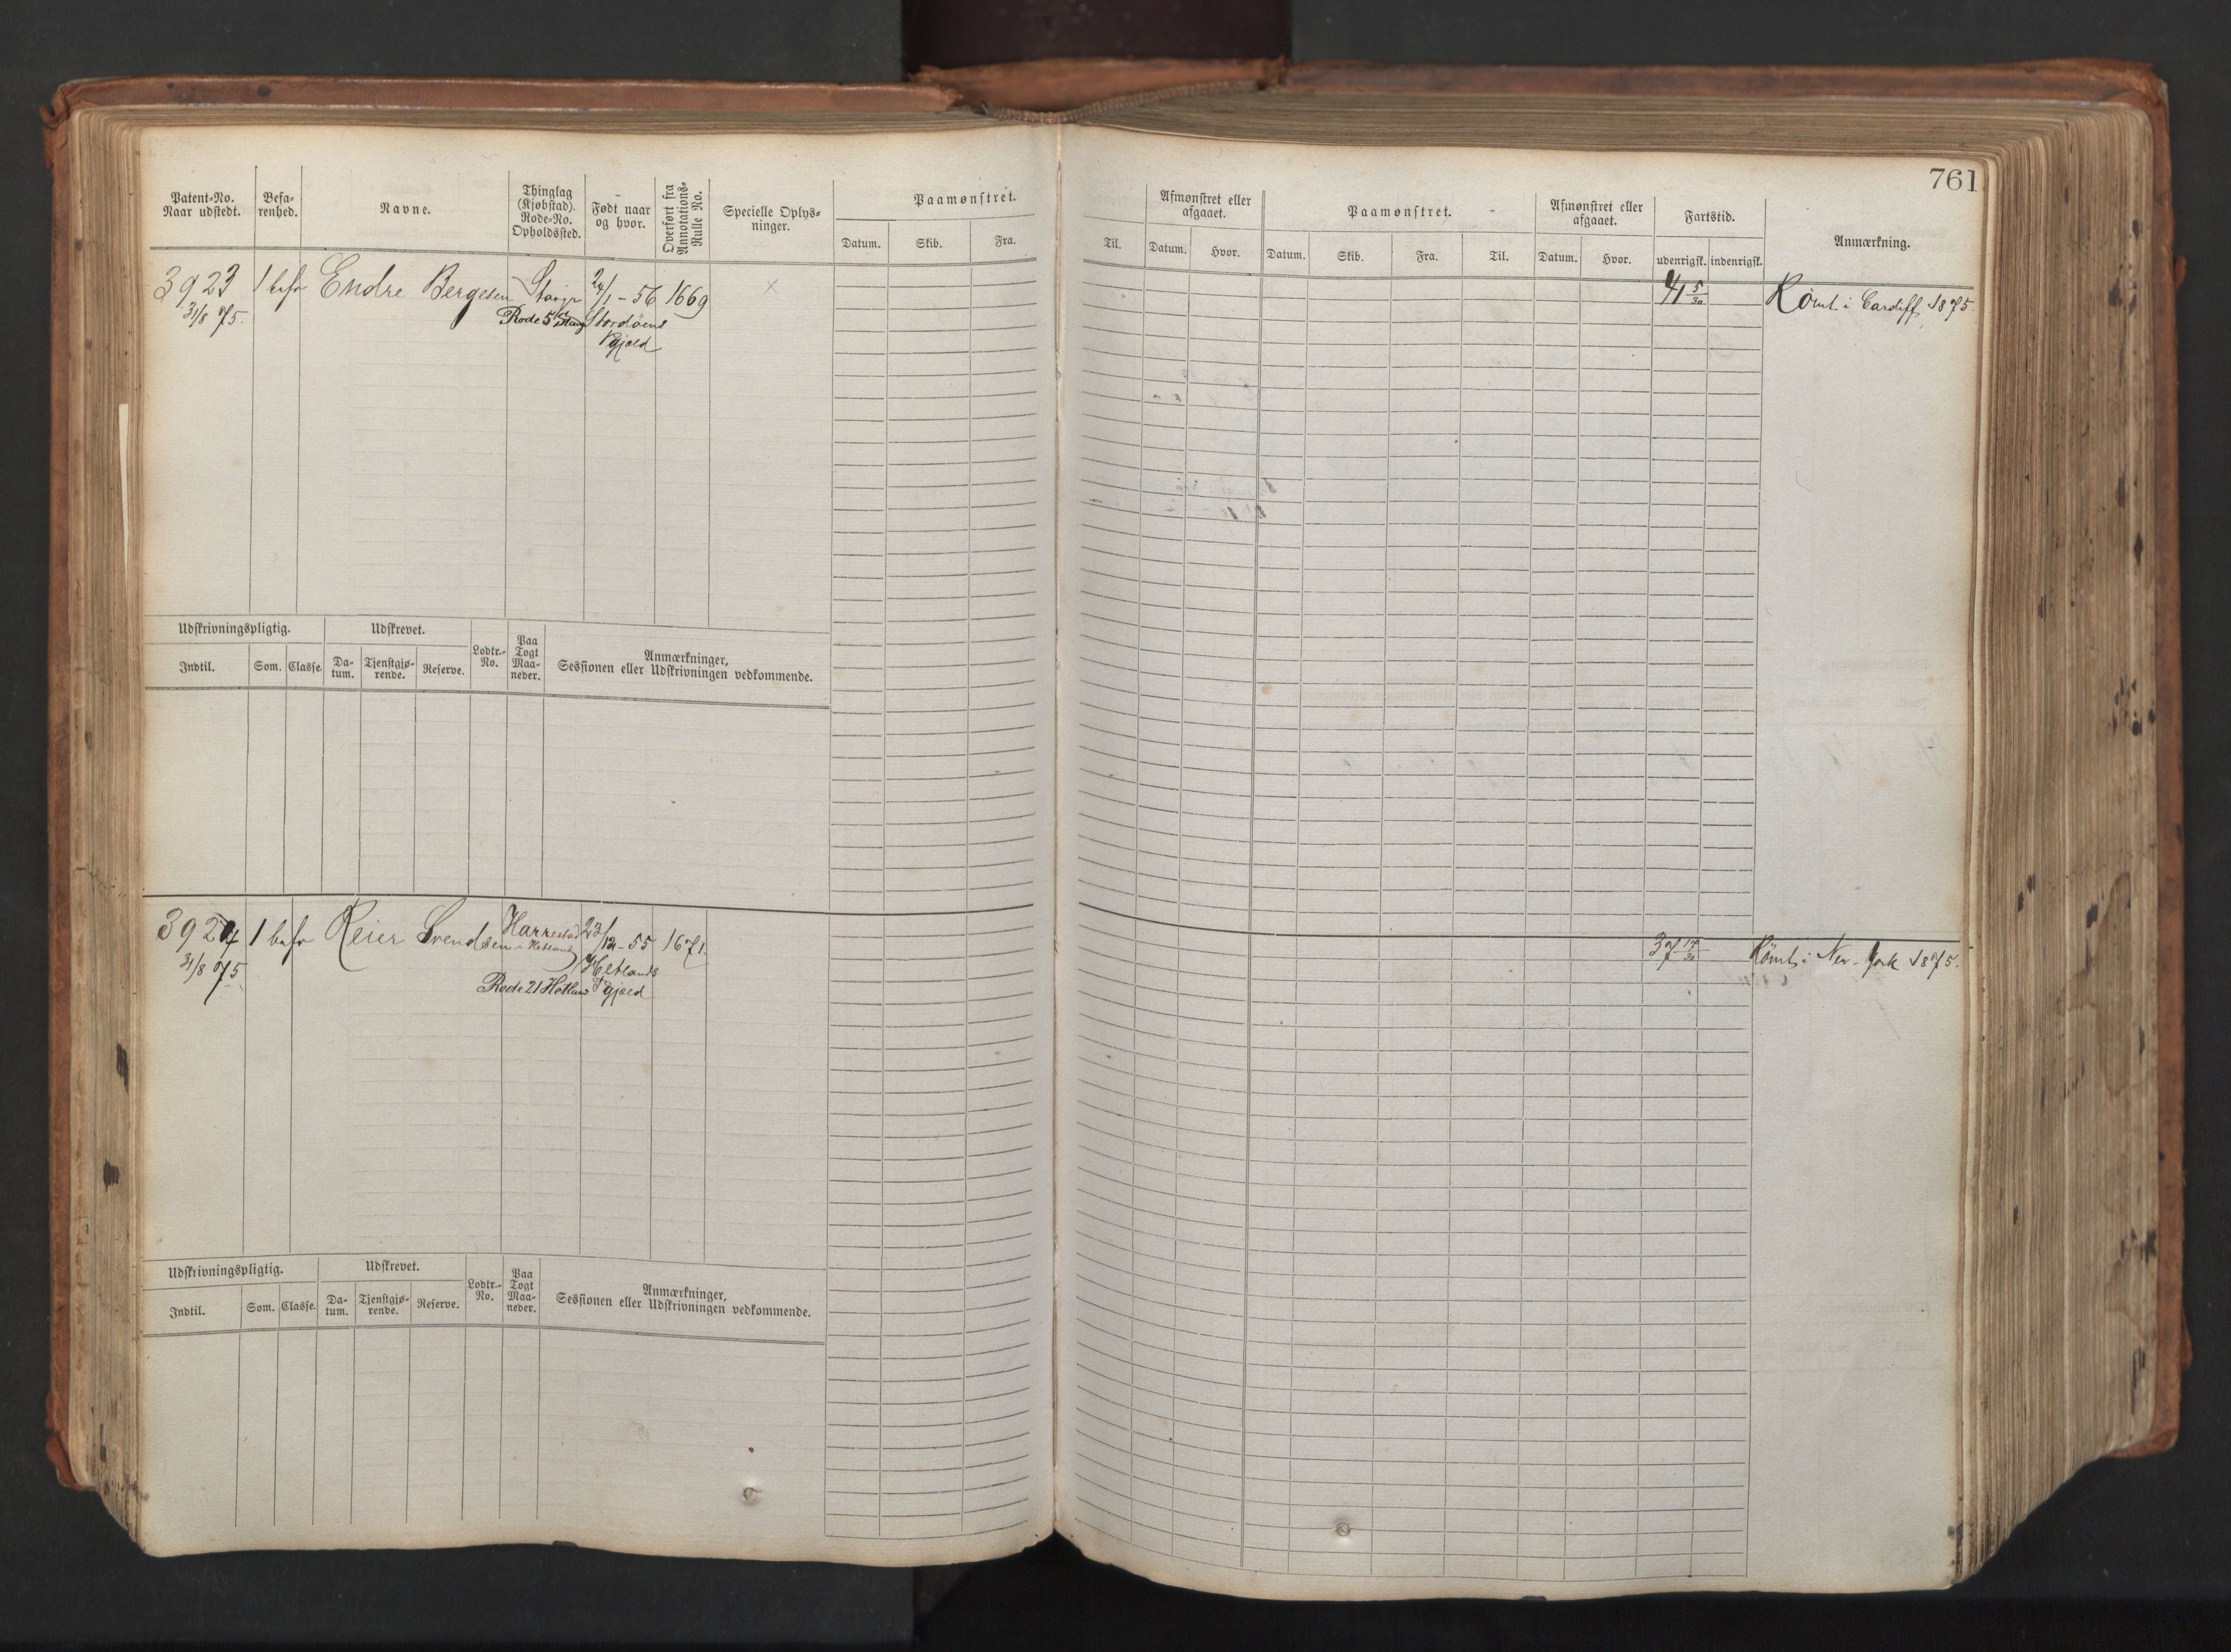 761
Patent=No.
Naar udstedt.
Befa=
renhed.
Navne.
Thinglag
(Kjøbstad).
Rode=No.
Opholdssted.
Født naar
og hvor.
Overført fra
Annotations=
Rulle No.
Specielle Oplys=
ninger.
Paamønstret.
Datum. Skib. Fra.
Til.
Afmønstret eller
afgaaet.
Datum. Hvor.
Paamønstret.
Datum. Skib. Fra. Til.
Afmønstret eller
afgaaet.
Datum. Hvor.
Fartstid.
udenrigsk. indenrigsk.
Anmærkning.
3923 1 befr Endre Bergesen Stavgr 24/1-56 1669 × 41 5/30 Römt i Cardiff 1875.
31/8 75. Rode 5 Stavg Stordöens
Pgjæld
Udskrivningspligtig. Udskrevet. Lodtr.=
No. Paa
Togt
Maa=
neder. Anmærkninger,
Sessionen eller Udskrivningen vedkommende.
Indtil. Som. Classe. Da=
tum. Tjenstgjø=
rende. Reserve.
3924 1 befr Reier Svendsen Harrestad i Hetland 23/12-55 1671. 37 17/30 Römt i New-York 1875.
31/8 75 Hetlands
Rode 21 Hetland Pgjæld
Udskrivningspligtig. Udskrevet. Lodtr.=
No. Paa
Togt
Maa=
neder. Anmærkninger,
Sessionen eller Udskrivningen vedkommende.
Indtil. Som. Classe. Da=
tum. Tjenstgjø=
rende. Reserve.